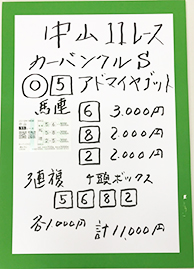 中山11レース
カーバンクルS
◎ 5 アドマイヤゴット
馬連 6 3.000円
8 2.000円
2 2.000円
3連複 4頭ボックス
5 6 8 2
各1000円 計11,000円